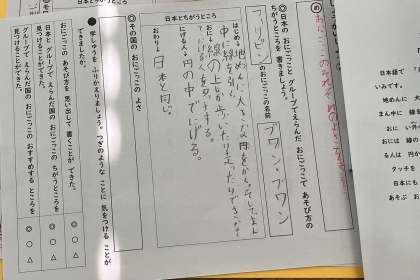 日本とちがうところ
◎日本の おにごっこと グループでえらんだ おにごっこで あそび方の
ちがうところを 書きましょう。
フィリピン のおにごっこの名前 プワン・プワン
日本とちがうところ
はじめ…地めんに大きな円をかく。そしてまん
中に線を引く。
おに…線の上しか歩いたり走ったりできない。
にげる人…円の中でにげる。
おわり…日本と同じ。
◎その国の おにごっこの よさ
●学しゅうを ふりかえりましょう。つぎのような ことに 気をつける ことが
できましたか。
おにごっこの あそび方を 思い出して 書くことが できた。 ◎ ○ △
日本と グループで えらんだ国の おにごっこの ちがうところを
見つけることが できた。 ◎ ○ △
グループで えらんだ国の おにごっこの おすすめする ところを
見つけることが できた。 ◎ ○ △
日本語で「
いみです。
地めんに 大
まん中に 線を
おには 線の
る人は 円か
タッチを
日本にも
あそぶ お